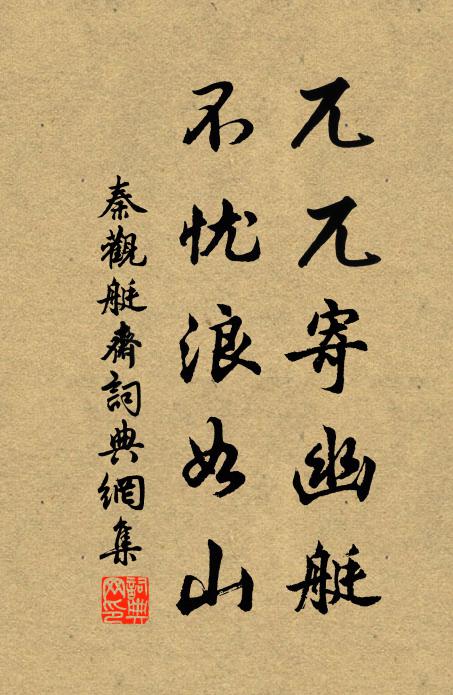 兀兀寄幽艇
不忧浪如山
秦觀艇齋詞典網集
詞典網印